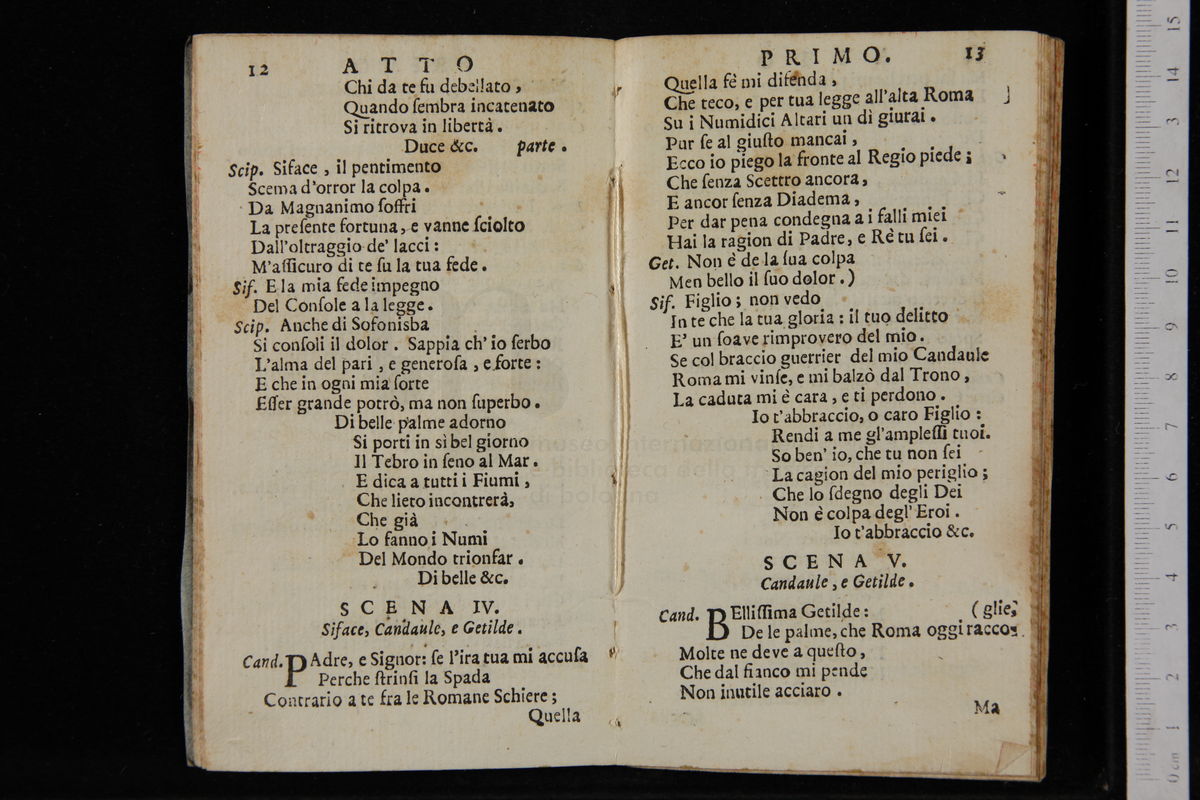 12 ATTO
Chi da te fu debellato,
Quando ſembra incatenato
Si ritrova in libertà.
Duce &c. parte.
Scip. Siface, il pentimento
Scema d'orror la colpa.
Da Magnanimo ſoffri
La preſente fortuna, e vanne ſciolto
Dall'oltraggio de' lacci:
M'aſſicuro di te ſu la tua fede.
Sif. E la mia fede impegno
Del Conſole a la legge.
Scip. Anche di Sofonisba
Si conſoli il dolor. Sappia ch' io ſerbo
L'alma del pari, e generoſa, e forte:
E che in ogni mia ſorte
Eſſer grande potrò, ma non ſuperbo.
Di belle palme adorno
Si porti in sì bel giorno
Il Tebro in ſeno al Mar.
E dica a tutti i Fiumi,
Che lieto incontrerà,
Che già
Lo fanno i Numi
Del Mondo trionfar.
Di belle &c.
SCENA IV.
Siface, Candaule, e Getilde.
Cand. PAdre, e Signor: ſe l'ira tua mi accuſa
Perche ſtrinſi la Spada
Contrario a te fra le Romane Schiere;
Quella
PRIMO. 13
Quella fè mi difenda,
Che teco, e per tua legge all'alta Roma
Su i Numidici Altari un dì giurai.
Pur ſe al giuſto mancai,
Ecco io piego la fronte al Regio piede;
Che ſenza Scettro ancora,
E ancor ſenza Diadema,
Per dar pena condegna a i falli miei
Hai la ragion di Padre, e Rè tu ſei.
Get. Non è de la ſua colpa
Men bello il ſuo dolor.)
Sif. Figlio; non vedo
In te che la tua gloria: il tuo delitto
E' un ſoave rimprovero del mio.
Se col braccio guerrier del mio Candaule
Roma mi vinſe, e mi balzò dal Trono,
La caduta mi è cara, e ti perdono.
Io t'abbraccio, o caro Figlio:
Rendi a me gl'ampleſſi tuoi.
So ben' io, che tu non ſei
La cagion del mio periglio;
Che lo ſdegno degli Dei
Non è colpa degl' Eroi.
Io t'abbraccio &c.
SCENA V.
Candaule, e Getilde.
Cand. BElliſſima Getilde: (glie,
De le palme, che Roma oggi racco-
Molte ne deve a queſto,
Che dal fianco mi pende
Non inutile acciaro.
Ma
museo internazionale
e biblioteca della
di bologna